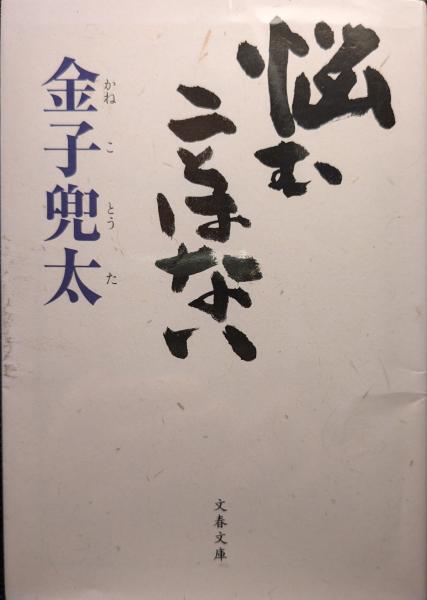 悩む
ことはない
金子兜太
かねことうた
文春文庫